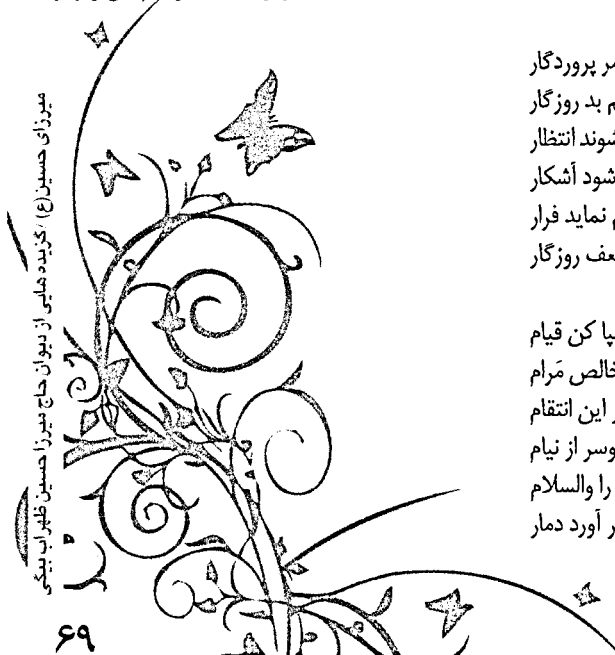 پروردگار
بد روزگار
انتظار
شود آشکار
نماید فرار
روزگار
کن قیام
مَرام
این انتقام
از نیام
را والسلام
آورد دمار
میرزای حسین(ع) /گزیده هایی از دیوان حاج میرزا حسین ظهراب بیگی
۶۹